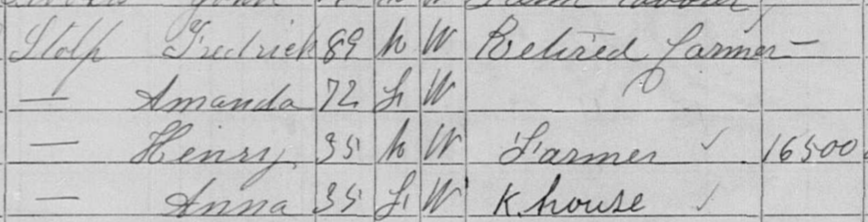 Stolp Fredrick 89 M W Retired farmer —
— Amanda 72 F W
— Henry 35 M W Farmer ✓ 16500
— Anna 35 F W K. house ✓